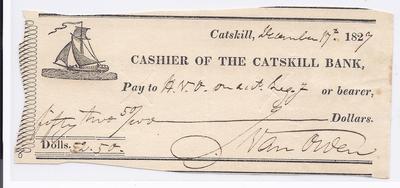 Catskill, December 17th 1827
CASHIER OF THE CATSKILL BANK,
Pay to H.V.O. on act. or bearer,
fifty two 50/100 Dollars.
Dolls. 52.50. Van Orden